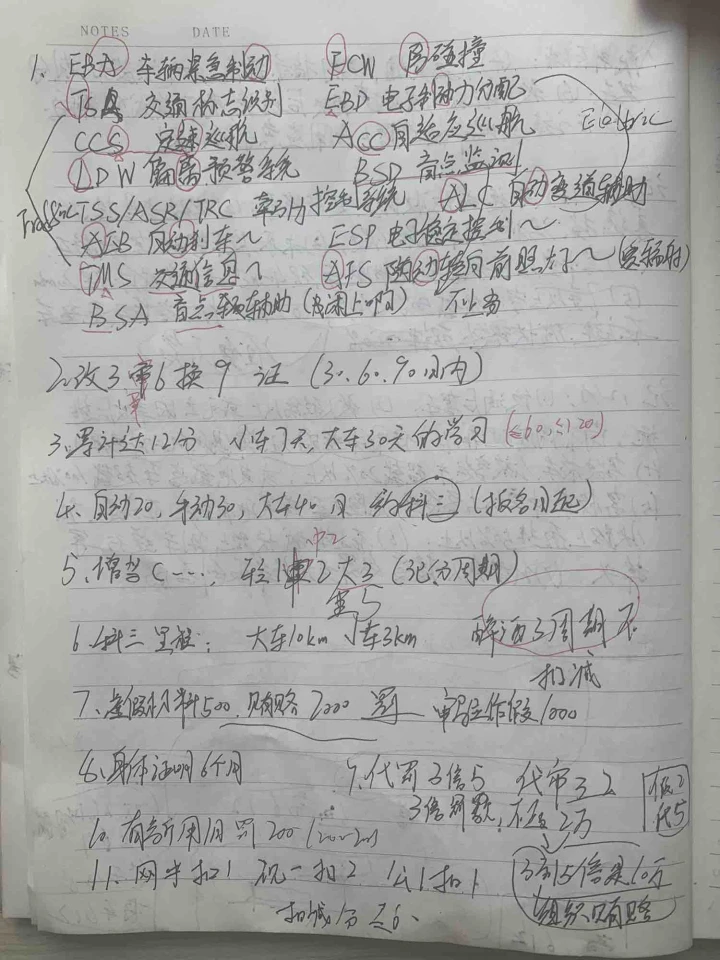 NOTES DATE
1. EBA 车辆紧急制动 ECW 防碰撞
TSR 交通标志识别 EBD 电子制动力分配
CCS 定速巡航 ACC 自适应巡航
LDW 偏离预警系统 BSD 盲点监测
TSS/ASR/TRC 牵引力控制系统 ALC 自动变道辅助
AEB 自动刹车~ ESP 电子稳定控制~
TMS 交通信息~ AFS 随动转向前照灯~
BSA 盲点辅助
2. 改3审6换9证 (30、60、90日内)
3. 累计达12分, 小车7天, 大车30天的学习 (≤60, ≤120)
4. 自动20, 手动30, 大车40日 约科三 (报名日起)
5. 增驾C…, 轻1中2大3 (记分周期)
重5
6. 科三里程: 大车10km 小车3km 醉酒3周期不
扣减
7. 虚假材料500 贿赂2000 罚 作假1000
8. 身体证明6个月 9. 代罚3倍5 代审32
3倍罚款, 不过2万
10. 有 用1日罚200
11. 网半扣1 现一扣2 公1扣1 3到5倍是10万
扣减1分 组织贿赂